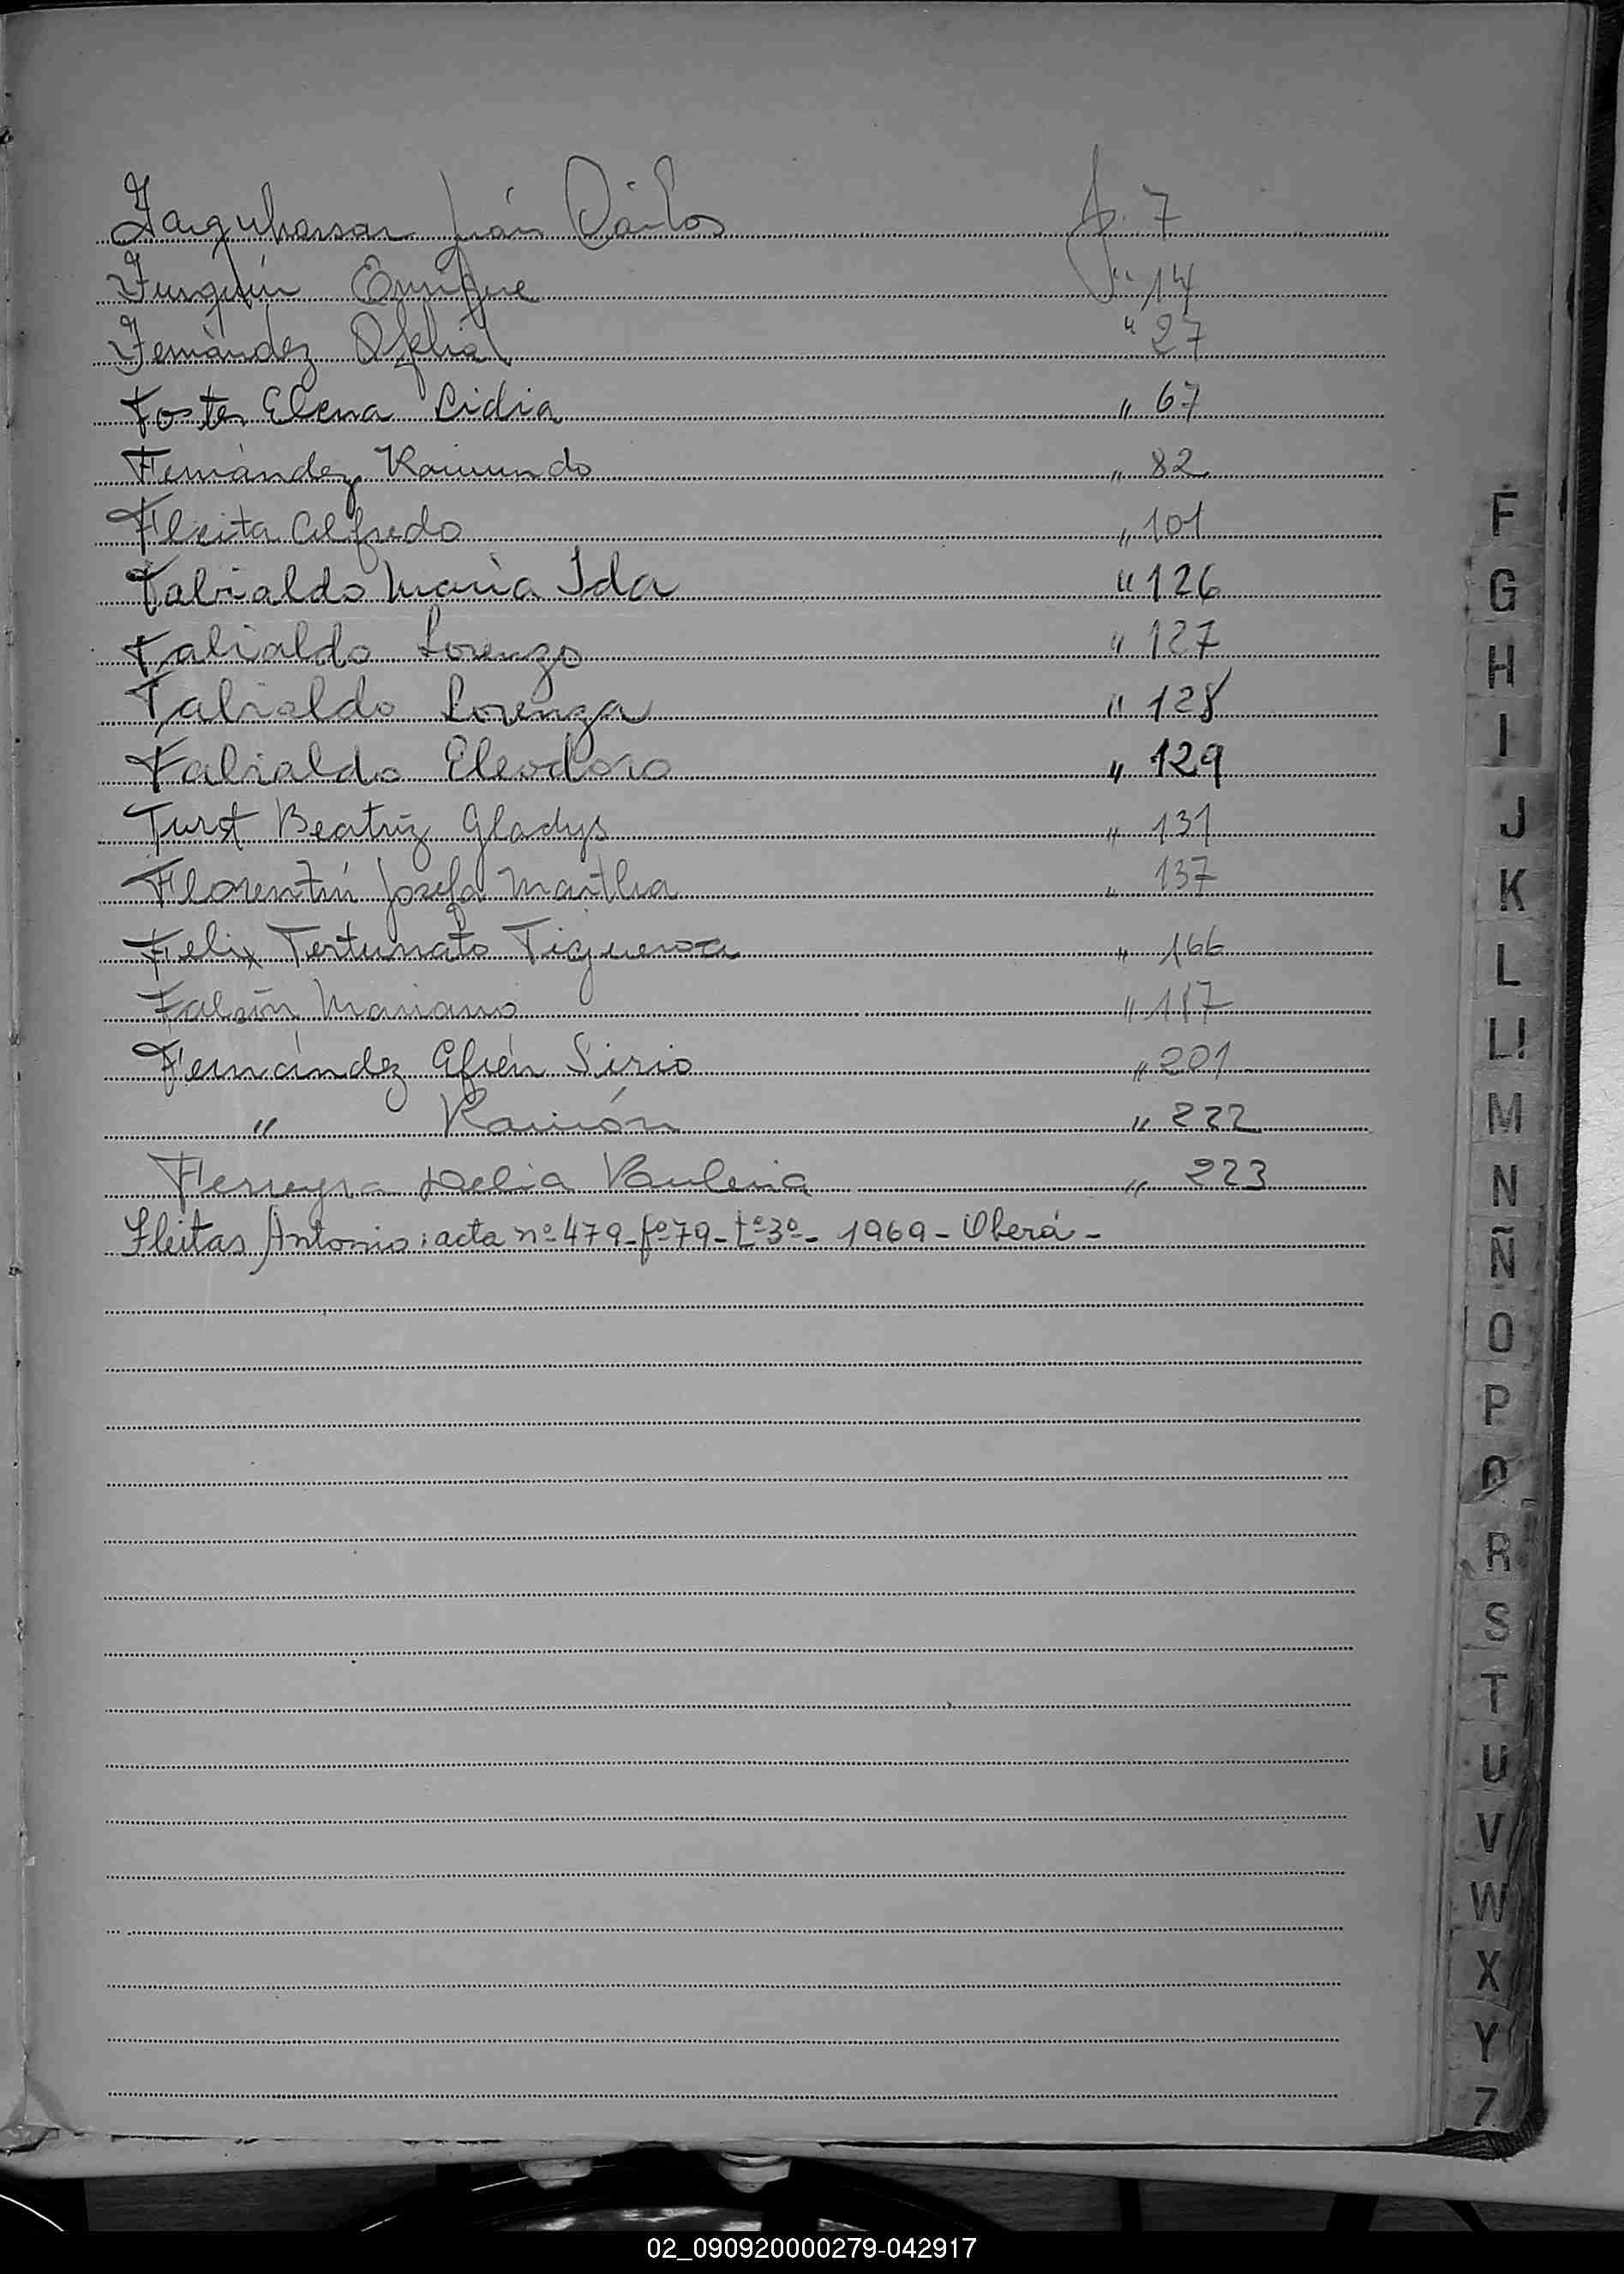 Farquharson Juán Cárlos f. 7
Furquín Enrique " 14
Fernández Ofelia " 27
Foster Elena Lidia " 67
Fernández Raimundo " 82
Fleita Alfredo " 101
Fabialdo María Ida " 126
Fabialdo Lorenzo " 127
Fabialdo Lorenza " 128
Fabialdo Eleodoro " 129
Furst Beatríz Gladys " 131
Florentín Josefa Martha " 137
Felix Fortunato Figueroa " 166
Falcón Mariano " 187
Fernández Efrén Sirio " 201
" Ramón " 222
Ferreyra Delia Paulena " 223
Fleitas Antonio: acta nº 479-fº79-tº3º- 1969-Oberá-
F
G
H
I
J
K
L
Ll
M
N
Ñ
O
P
Q
R
S
T
U
V
W
X
Y
Z
02_090920000279-042917